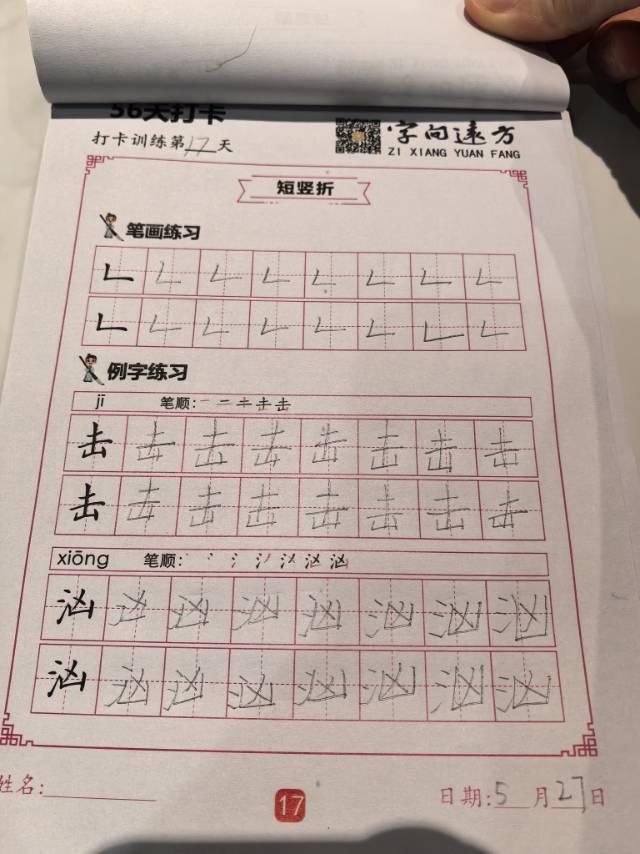 56天打卡
打卡训练第17天
字向远方
ZI XIANG YUAN FANG
短竖折
笔画练习
𠃊 𠃊 𠃊 𠃊 𠃊 𠃊 𠃊 𠃊
𠃊 𠃊 𠃊 𠃊 𠃊 𠃊 𠃊 𠃊
例字练习
jī 笔顺: 一 二 キ 击 击
击 击 击 击 击 击 击 击
击 击 击 击 击 击 击 击
xiōng 笔顺:
汹 汹 汹 汹 汹 汹 汹 汹
汹 汹 汹 汹 汹 汹 汹 汹
姓名:
17
日期:5月27日